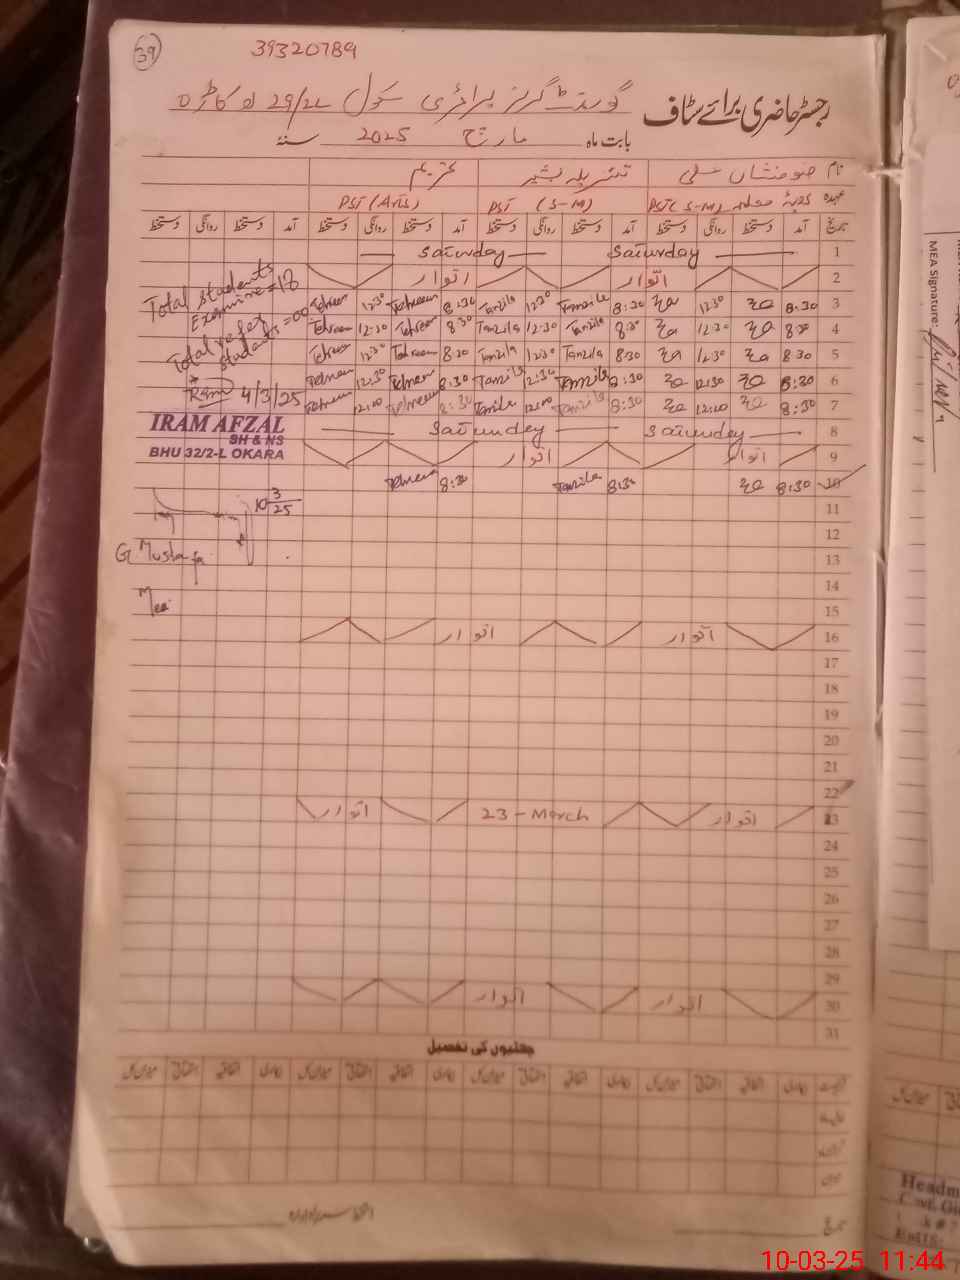 39
39320789
رجسٹر حاضری برائے سٹاف گورنمنٹ گرلز پرائمری سکول 29/2L اوکاڑہ
بابت ماہ مارچ 2025 سنۃ
نام ضوفشاں سلمی تنزیلہ بشیر تحریم
عہدہ PST (S-M) PST (S-M) PST (Arts)
تاریخ آمد دستخط روانگی دستخط آمد دستخط روانگی دستخط آمد دستخط روانگی دستخط آمد دستخط روانگی دستخط
1 Saturday Saturday
2 اتوار اتوار
3 8:30 12:30 8:30 Tanzila 12:30 Tanzila 8:30 Tehreem 12:30 Tehreem
4 8:30 12:30 8:30 Tanzila 12:30 Tanzila 8:30 Tehreem 12:30 Tehreem
5 8:30 12:30 8:30 Tanzila 12:30 Tanzila 8:30 Tehreem 12:30 Tehreem
6 8:30 12:30 8:30 Tanzila 12:30 Tanzila 8:30 Tehreem 12:30 Tehreem
7 8:30 12:00 8:30 Tanzila 12:00 Tanzila 8:30 Tehreem 12:00 Tehreem
8 Saturday Saturday
9 اتوار اتوار
10 8:30 8:30 Tanzila 8:30 Tehreem
11
12
13
14
15
16 اتوار اتوار
17
18
19
20
21
22
23 اتوار 23-March اتوار
24
25
26
27
28
29
30 اتوار اتوار
31
Total students
Examine = 18
Total refer
students = 00
4/3/25
IRAM AFZAL
SH & NS
BHU 32/2-L OKARA
10 3/25
G Mustafa
Mea
چھٹیوں کی تفصیل
MEA Signature:
Headm
10-03-25 11:44